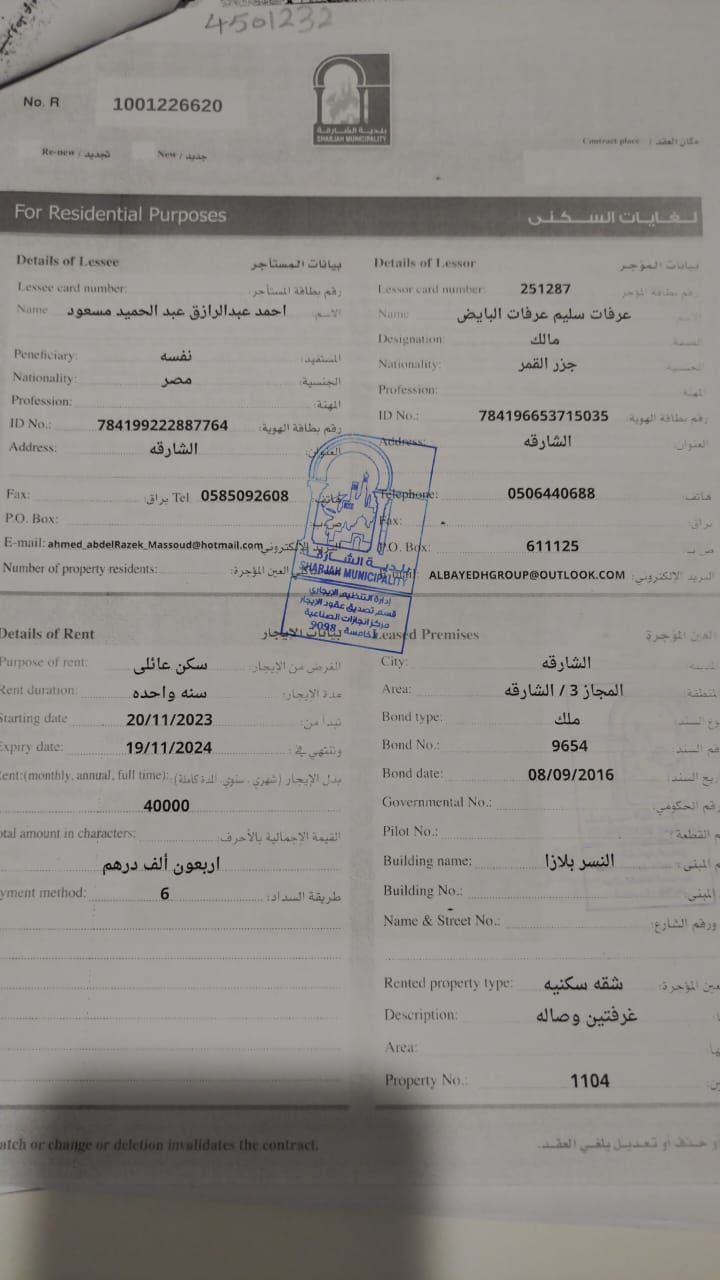 4501232
No. R 1001226620
بلدية الشارقة
SHARJAH MUNICIPALITY
Contract place / مكان العقد :
Re-new / تجديد
New / جديد
For Residential Purposes
لغايات السكنى
Details of Lessee بيانات المستأجر
Lessee card number: رقم بطاقة المستأجر:
Name احمد عبدالرازق عبد الحميد مسعود الاسم:
Peneficiary: نفسه المستفيد:
Nationality: مصر الجنسية:
Profession: المهنة:
ID No.: 784199222887764 رقم بطاقة الهوية:
Address: الشارقه العنوان:
Fax: براق: Tel 0585092608 هاتف:
P.O. Box: ص.ب:
E-mail: ahmed_abdelRazek_Massoud@hotmail.com البريد الإلكتروني
Number of property residents: العين المؤجرة:
Details of Lessor بيانات المؤجر
Lessor card number: 251287 رقم بطاقة المؤجر
Name عرفات سليم عرفات البايض الاسم
Designation: مالك الصفة
Nationality: جزر القمر الجنسية
Profession: المهنة
ID No.: 784196653715035 رقم بطاقة الهوية
Address: الشارقه العنوان
Telephone: 0506440688 هاتف:
Fax: براق:
P.O. Box: 611125 ص ب
ALBAYEDHGROUP@OUTLOOK.COM البريد الإلكتروني:
بلدية الشارقة
SHARJAH MUNICIPALITY
إدارة التنظيم الإيجاري
قسم تصديق عقود الإيجار
مركز انجازات الصناعية
الخامسة 9098
Details of Rent بيانات الايجار
Purpose of rent: سكن عائلى الغرض من الإيجار:
Rent duration: سنه واحده مدة الإيجار:
Starting date 20/11/2023 تبدأ من:
Expiry date: 19/11/2024 وتنتهي في:
Rent:(monthly, annual, full time): بدل الإيجار (شهري، سنوي، المدة كاملة):
40000
Total amount in characters: القيمة الإجمالية بالأحرف:
اربعون ألف درهم
yment method: 6 طريقة السداد:
Leased Premises العين المؤجرة
City: الشارقه المدينه
Area: المجاز 3 / الشارقه المنطقة
Bond type: ملك وع السند:
Bond No.: 9654 قم السند:
Bond date: 08/09/2016 ريخ السند:
Governmental No.: رقم الحكومي:
Pilot No.: م القطعة:
Building name: النسر بلازا م المبنى:
Building No.: المبنى:
Name & Street No.: ورقم الشارع:
Rented property type: شقه سكنيه عين المؤجرة:
Description: غرفتين وصاله
Area:
Property No.: 1104
atch or change or deletion invalidates the contract.
و حذف أو تعديل يلغي العقد.